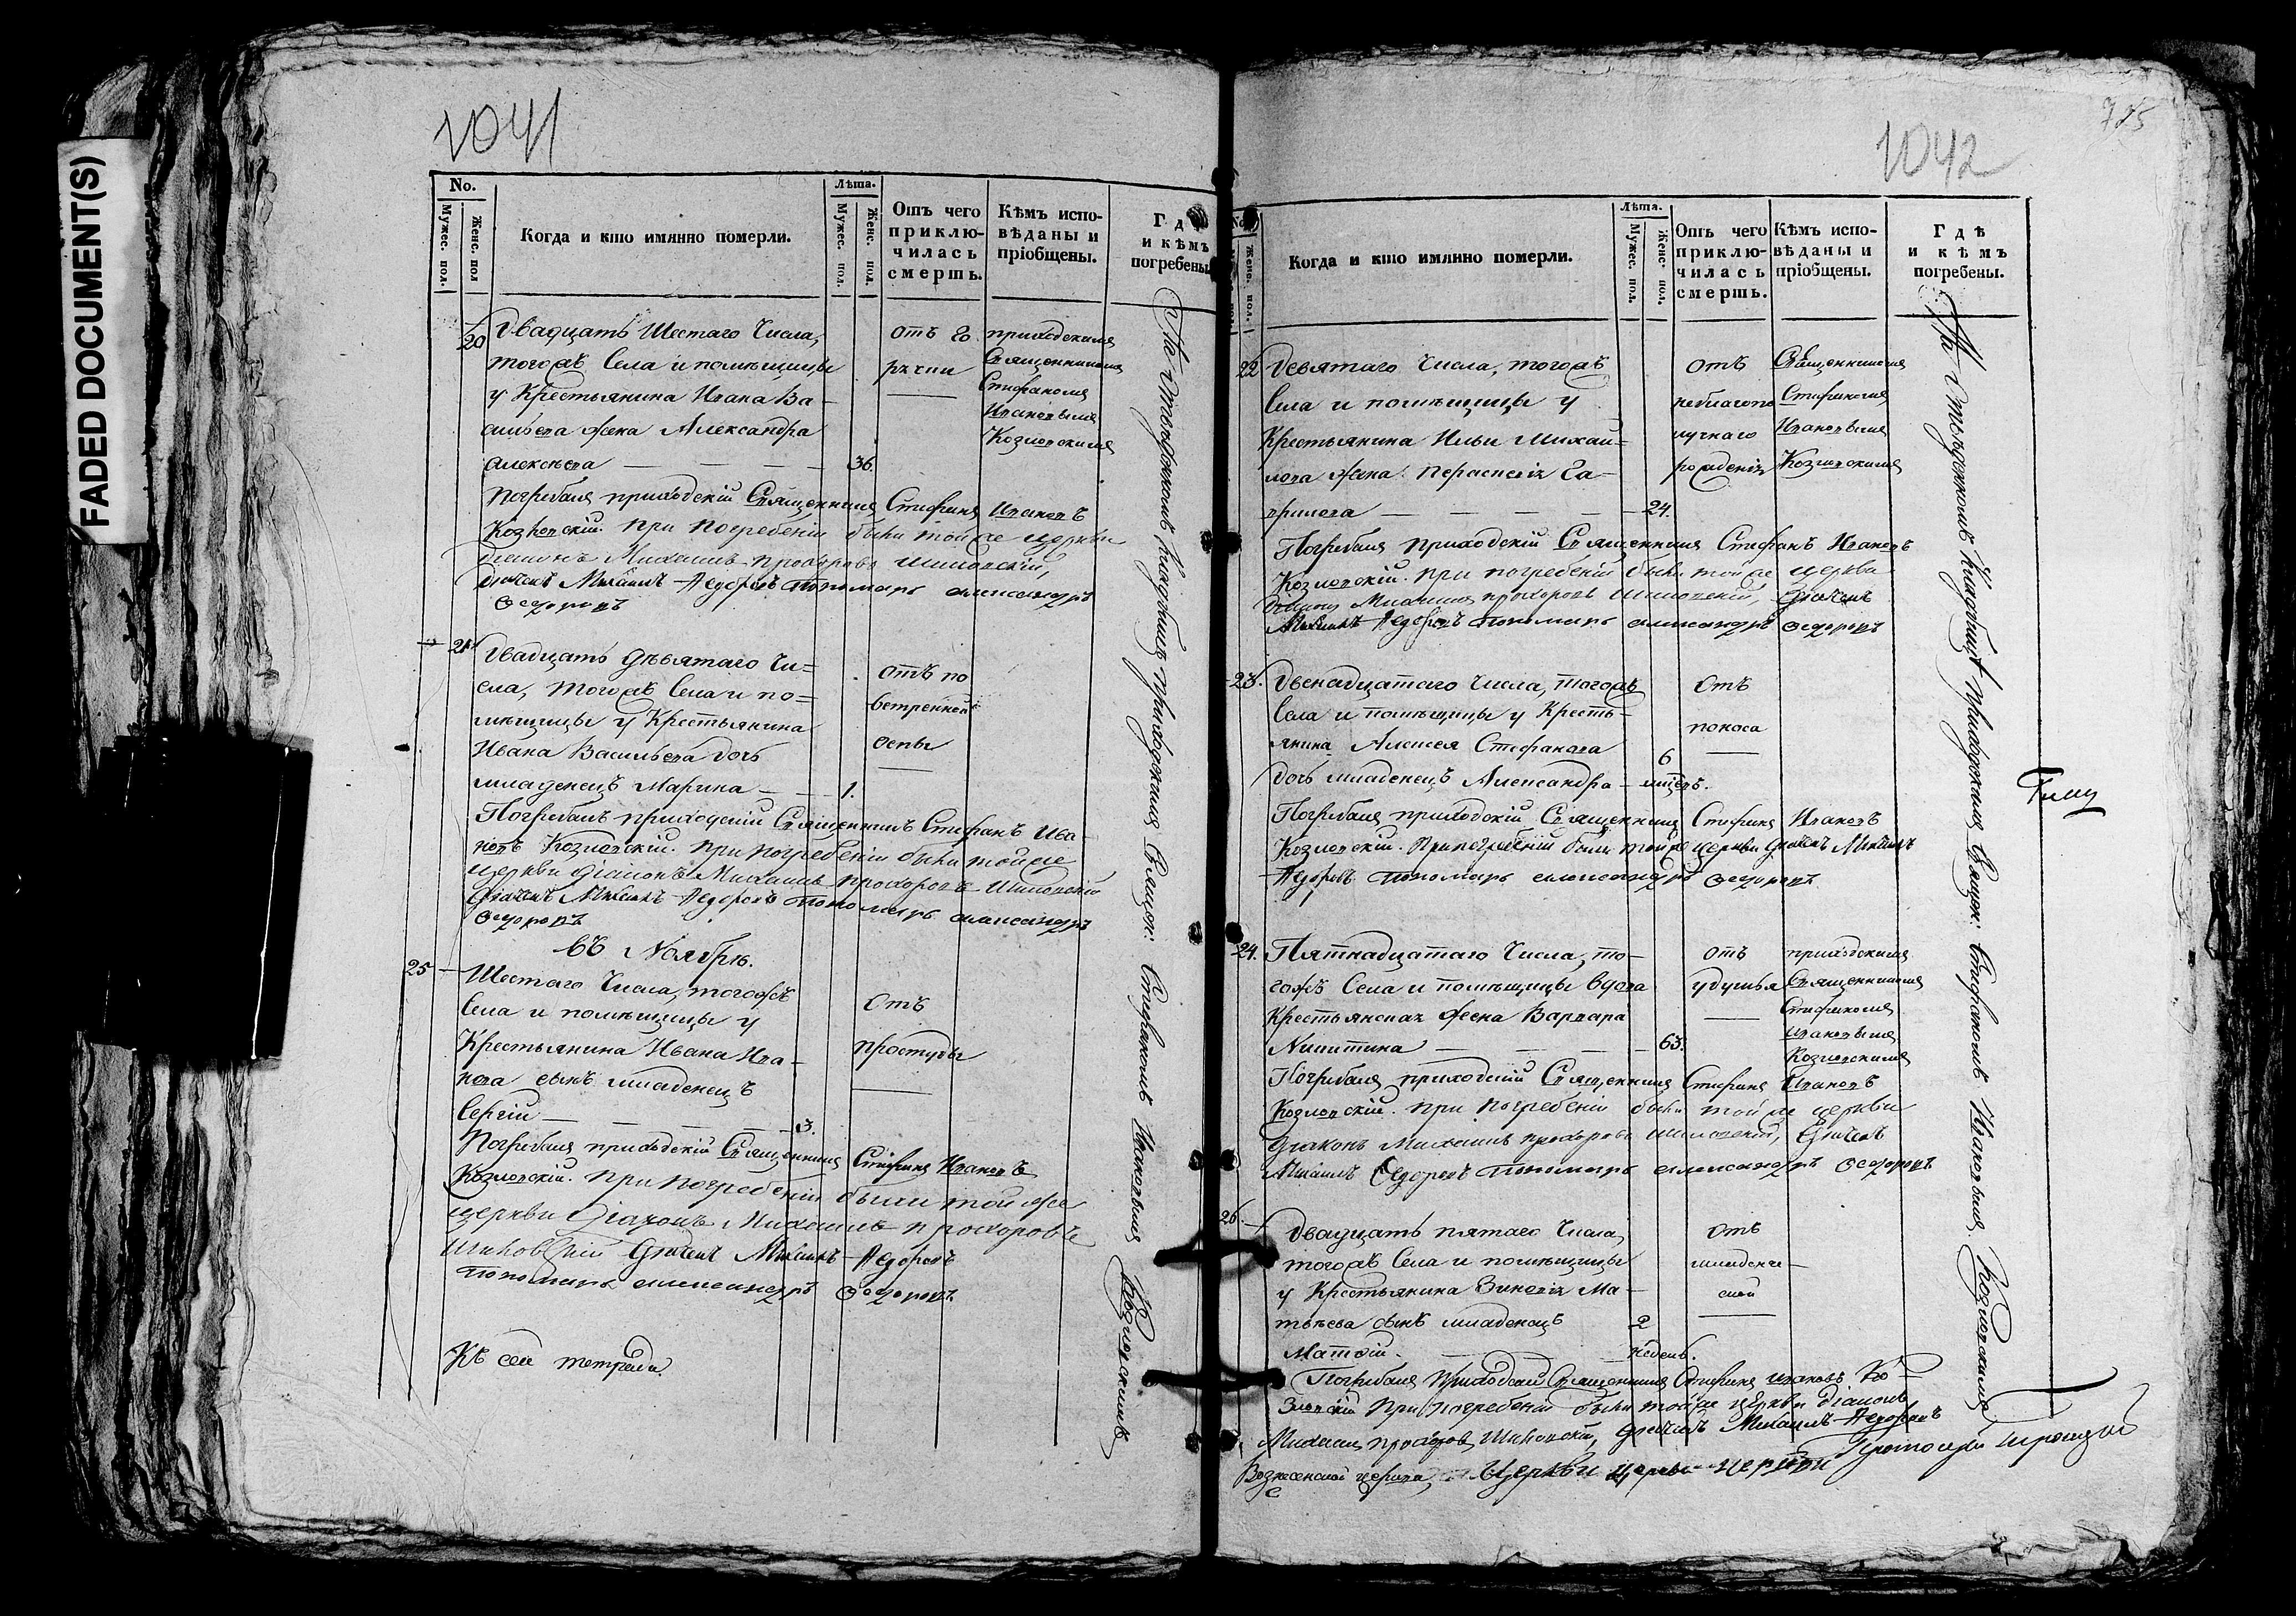 FADED DOCUMENT(S)
1041
No.
Мужес. пол.
Женс. пол
Когда и кто имянно померли.
Лѣта.
Мужес. пол.
Женс. пол.
Отъ чего приклю-чилась смерть.
Кѣмъ испо-вѣданы и пріобщены.
Гдѣ и кѣмъ погребены.
20 Двадцать Шестаго Числа,
тогожъ Села и помѣщицы
у Крестьянина Ивана Ва-
сильева жена Александра
Алексѣева — — — — 36.
отъ го
рячки
приходскимъ
Священникомъ
Стефаномъ
Ивановымъ
Козловскимъ
Погребалъ приходскій Священникъ Стефанъ Ивановъ
Козловскій. При погребеніи были той же церкви
діаконъ Михаилъ Прохоровъ Шиловскій,
дьячекъ Михаилъ Федоровъ пономарь Александръ
Ѳедоровъ
21 Двадцать девятаго Чи-
сла, тогожъ Села и по-
мѣщицы у Крестьянина
Ивана Васильева дочь
младенецъ Марина — — 1.
отъ по
ветренной
оспы
Погребалъ приходскій Священникъ Стефанъ Ива-
новъ Козловскій. При погребеніи были той же
церкви діаконъ Михаилъ Прохоровъ Шиловскій
дьячекъ Михаилъ Федоровъ пономарь Александръ
Ѳедоровъ
въ Ноябрѣ.
25 Шестаго Числа, тогожъ
Села и помѣщицы у
Крестьянина Ивана Ива-
нова сынъ младенецъ
Сергій — — — — 3.
отъ
простуды
Погребалъ приходскій Священникъ Стефанъ Ивановъ
Козловскій. При погребеніи были той же
церкви діаконъ Михаилъ Прохоровъ
Шиловскій дьячекъ Михаилъ Федоровъ
пономарь Александръ Ѳедоровъ
Къ сей тетради
На кладбищѣ приходскимъ Священ: Стефаномъ Ивановымъ Козловскимъ
1042
No.
Женс. пол.
Когда и кто имянно померли.
Лѣта.
Мужес. пол.
Женс. пол.
Отъ чего приклю-чилась смерть.
Кѣмъ испо-вѣданы и пріобщены.
Гдѣ и кѣмъ погребены.
22 Девятаго Числа, тогожъ
Села и помѣщицы у
Крестьянина Ильи Михай-
лова жена Га-
врилова — — — — 24.
отъ
неблагопо
лучнаго
рожденія
Священникомъ
Стефаномъ
Ивановымъ
Козловскимъ
Погребалъ приходскій Священникъ Стефанъ Ивановъ
Козловскій. При погребеніи были той же церкви
діаконъ Михаилъ Прохоровъ Шиловскій, дьячекъ
Михаилъ Федоровъ пономарь Александръ Ѳедоровъ
23. Двенадцатаго Числа, тогожъ
Села и помѣщицы у Кресть-
янина Алексея Стефанова
дочь младенецъ Александра — 6 мцовъ.
отъ
поноса
Погребалъ приходскій Священникъ Стефанъ Ивановъ
Козловскій. При погребеніи были той же церкви дьячекъ Михаилъ
Федоровъ пономарь Александръ Ѳедоровъ
24. Пятнадцатаго Числа, то-
гожъ Села и помѣщицы вдова
Крестьянская жена Варвара
Никитина — — — — 63.
отъ
удушья
приходскимъ
Священникомъ
Стефаномъ
Ивановымъ
Козловскимъ
Погребалъ приходскій Священникъ Стефанъ Ивановъ
Козловскій. При погребеніи были той же церкви
діаконъ Михаилъ Прохоровъ Шиловскій, дьячекъ
Михаилъ Федоровъ пономарь Александръ Ѳедоровъ
26. Двадцать пятаго Числа,
тогожъ Села и помѣщицы
у Крестьянина Зиновія Ма-
твѣева сынъ младенецъ
Матѳій. — 2 недель.
отъ
младенче-
ской
Погребалъ приходскій Священникъ Стефанъ Ивановъ Ко-
зловскій При погребеніи были той же церкви діаконъ
Михаилъ Прохоровъ Шиловскій, дьячекъ Михаилъ Федоровъ
Вознесенской церкви
На кладбищѣ приходскимъ Священ: Стефаномъ Ивановымъ Козловскимъ